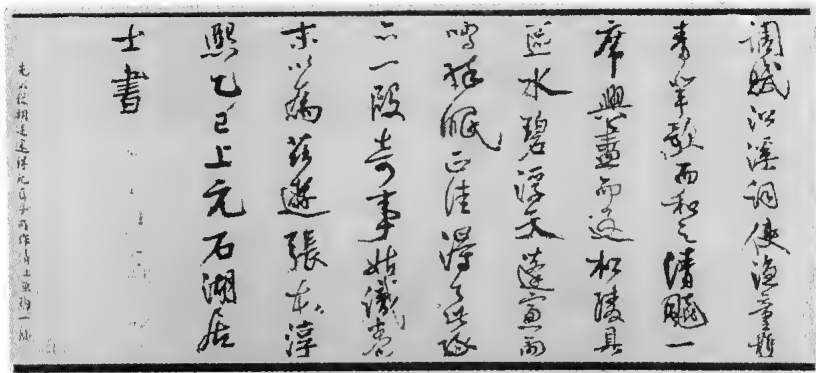 調賦沿溪詞使漁童樵
青輩歌而和之清飆一
席興盡而返松陵具
區水碧浮天蓬窗雨
鳴醉眠正佳得了此緣
亦一段奇事姑識卷
末以為茲遊張本淳
熙乙巳上元石湖居
士書